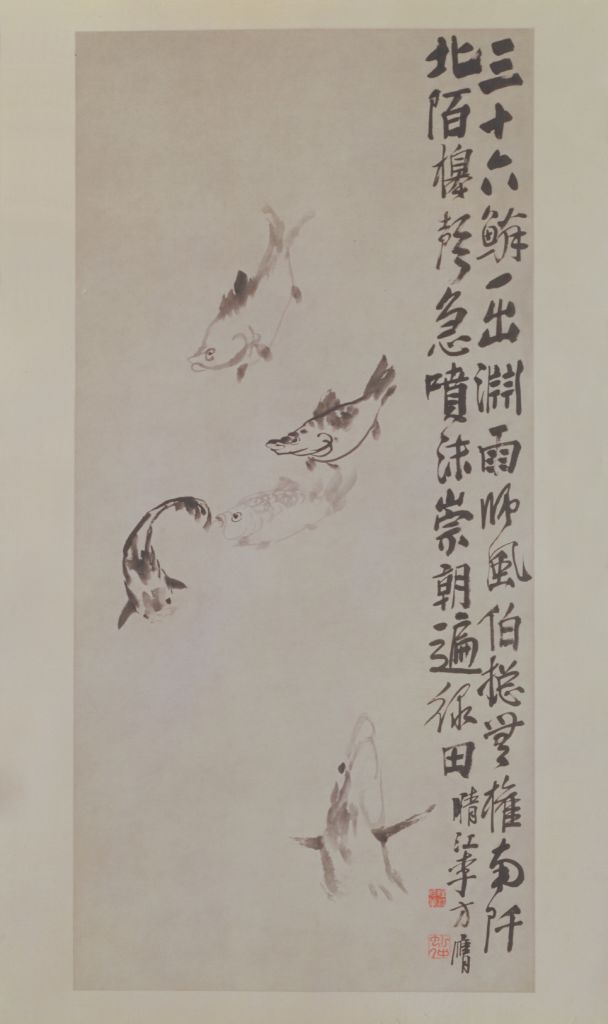 三十六鱗一出淵雨師風伯摠無權南阡
北陌槔聲急噴沫崇朝遍綠田
晴江李方膺